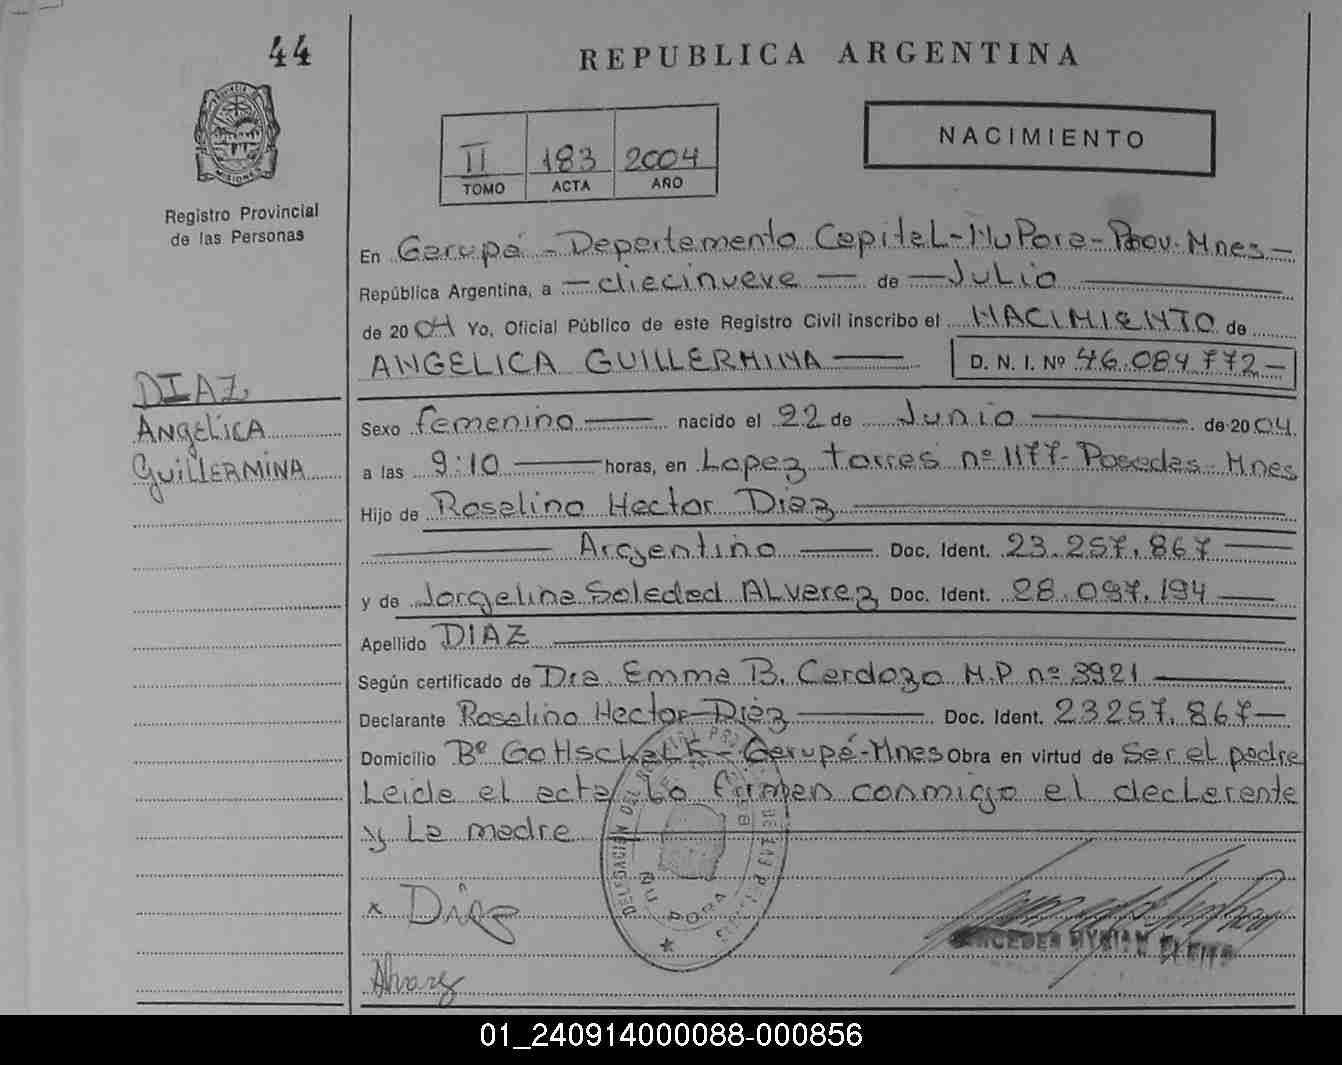 44
REPUBLICA ARGENTINA
PROVINCIA DE
MISIONES
Registro Provincial
de las Personas
II 183 2004
TOMO ACTA AÑO
NACIMIENTO
En Garupá - Departamento Capital - Ñu Pora - Prov. Mnes -
República Argentina, a diecinueve de Julio
de 2004 Yo, Oficial Público de este Registro Civil inscribo el NACIMIENTO de
ANGELICA GUILLERMINA D. N. I. Nº 46.084.772-
DIAZ
ANGELICA
GUILLERMINA
Sexo femenino nacido el 22 de Junio de 2004.
a las 9:10 horas, en Lopez torres nº 1177- Posadas - Mnes
Hijo de Roselino Hector Diaz
Argentino Doc. Ident. 23.257.867
y de Jorgelina Soledad ALvarez Doc. Ident. 28.097.194
Apellido DIAZ
Según certificado de Dra. Emma B. Cardozo M.P nº 3921
Declarante Roselino Hector Diaz Doc. Ident. 23257.867-
Domicilio Bº Gottschalk - Garupá - Mnes Obra en virtud de Ser el padre
Leida el acta La firman conmigo el declarante
y La madre
DELEGACIÓN DEL REGISTRO PROVINCIAL DE LAS PERSONAS
ÑU PORA
x Diaz
Alvarez
MERCEDES MYRIAM
01_240914000088-000856